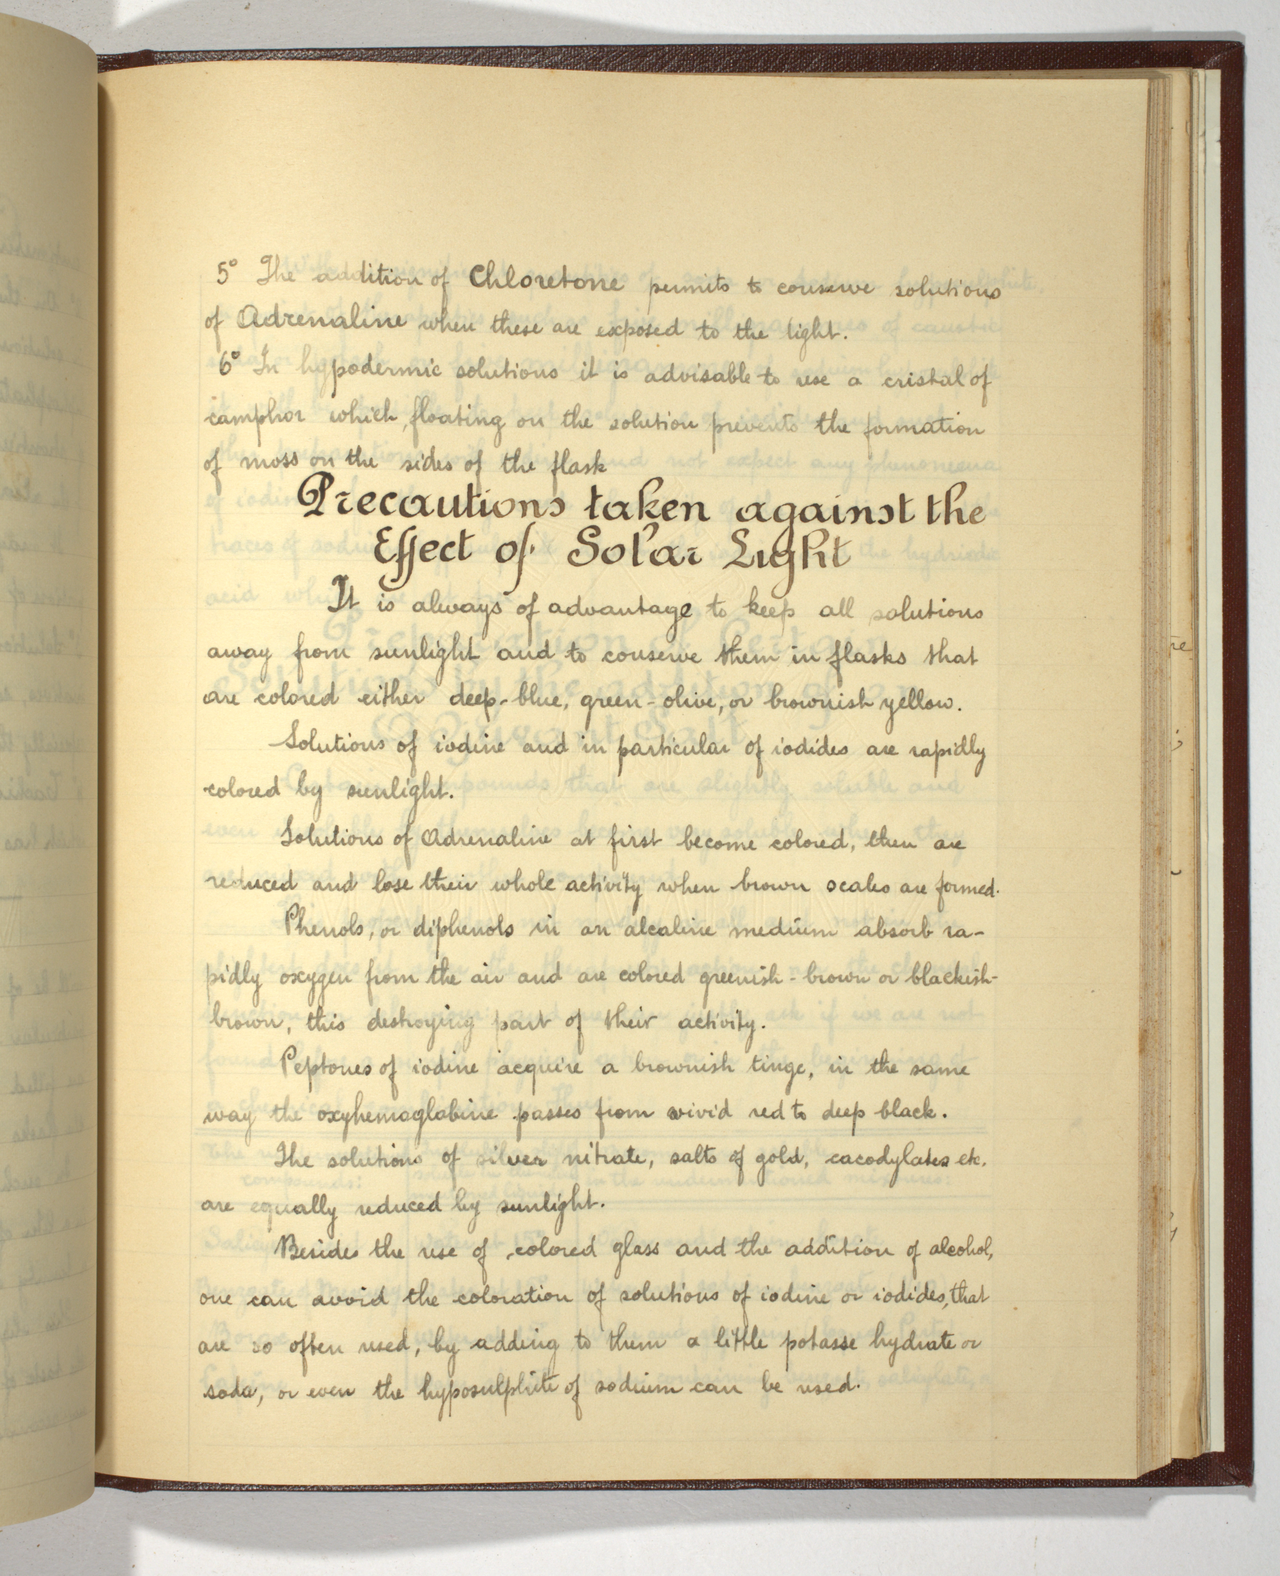 5° The addition of Chloretone permits to conserve solutions
of Adrenaline when these are exposed to the light.
6° In hypodermic solutions it is advisable to use a cristal of
camphor which, floating on the solution prevents the formation
of moss on the sides of the flask
Precautions taken against the
Effect of Solar Light
It is always of advantage to keep all solutions
away from sunlight and to conserve them in flasks that
are colored either deep-blue, green-olive, or brownish yellow.
Solutions of iodine and in particular of iodides are rapidly
colored by sunlight.
Solutions of Adrenaline at first become colored, then are
reduced and lose their whole activity when brown scales are formed.
Phenols, or diphenols in an alcaline medium absorb ra-
pidly oxygen from the air and are colored greenish-brown or blackish-
brown, this destroying part of their activity.
Peptones of iodine acquire a brownish tinge, in the same
way the oxyhemoglobine passes from vivid red to deep black.
The solutions of silver nitrate, salts of gold, cacodylates etc.
are equally reduced by sunlight.
Besides the use of colored glass and the addition of alcohol,
one can avoid the coloration of solutions of iodine or iodides, that
are so often used, by adding to them a little potasse hydrate or
soda, or even the hyposulphite of sodium can be used.